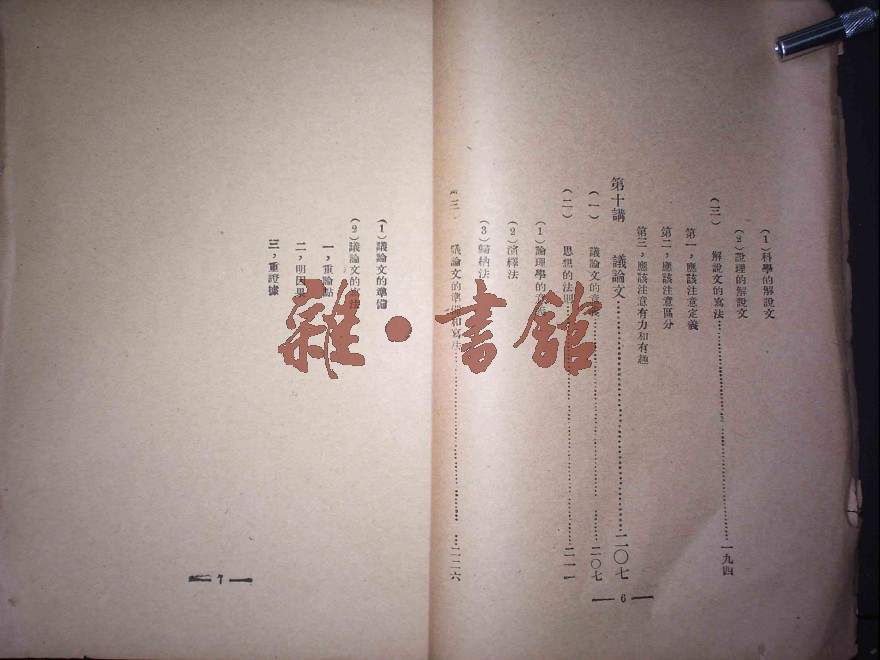 (1)科學的解說文
(2)說理的解說文
(三) 解說文的寫法……一九四
第一，應該注意定義
第二，應該注意區分
第三，應該注意有力和有趣
第十講 議論文……二〇七
(一) 議論文的意義……二〇七
(二) 思想的法則……二一一
(1)論理學的意義
(2)演釋法
(3)歸納法
(三) 議論文的準備和寫法……二二六
— 6 —
(1)議論文的準備
(2)議論文的寫法
一，重論點
二，明因果
三，重證據
— 7 —
雜·書館